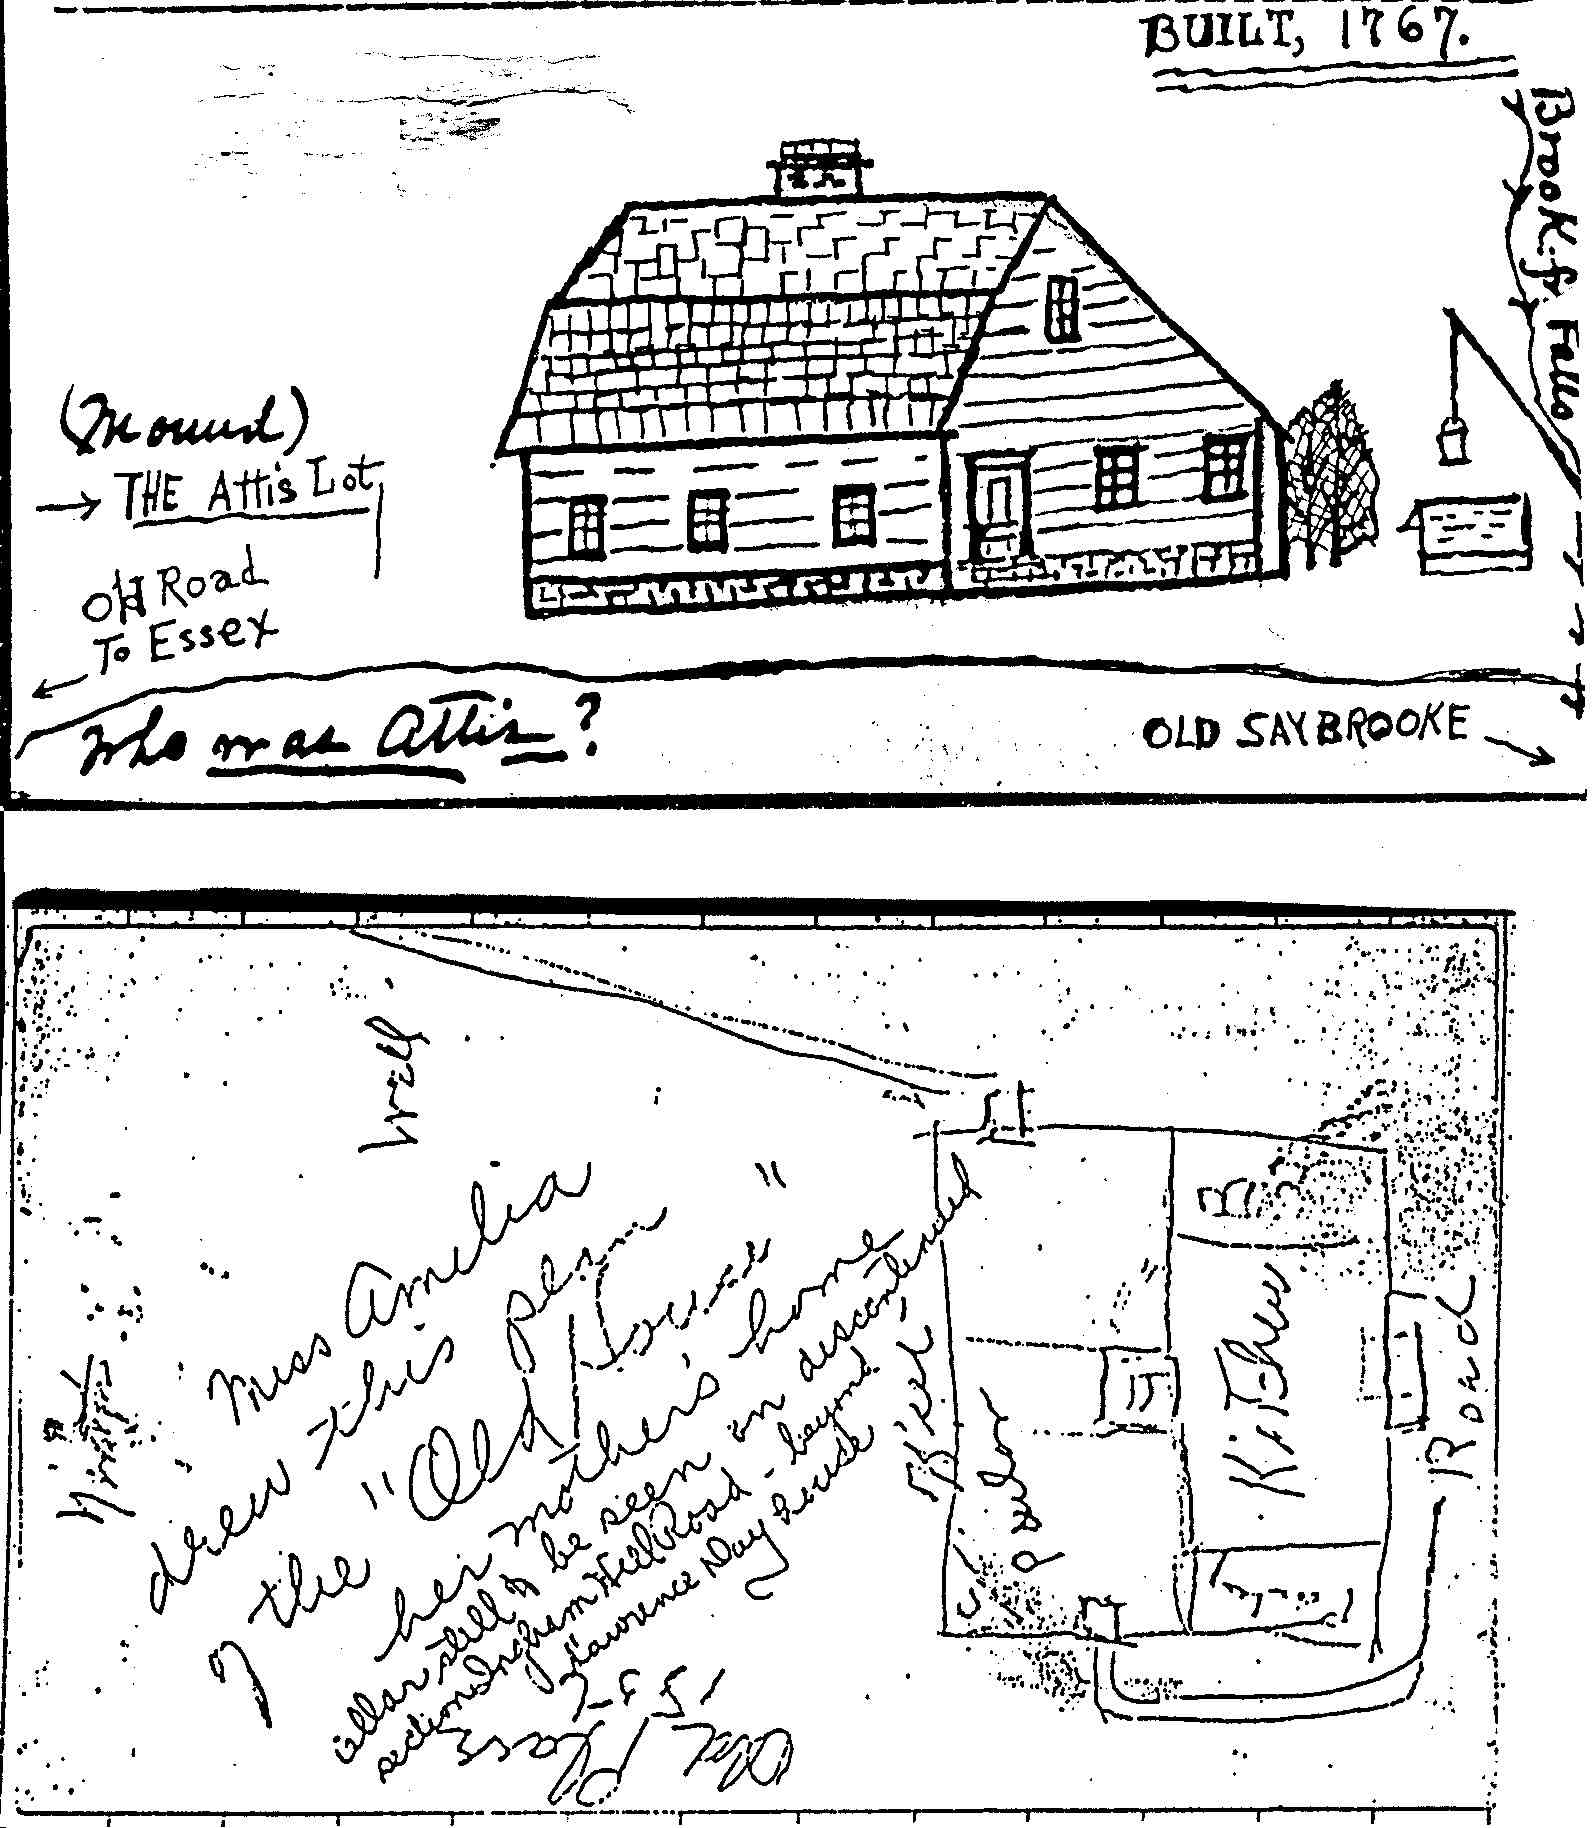 BUILT, 1767.
Brook & Falls
(Mound)
→ THE Attis Lot
Old Road
To Essex
Who was Attis?
OLD SAYBROOKE
Well.
Miss Amelia
drew this plan
of the "Old House"
her mother's home
cellar still to be seen on discontinued
section Ingham Hill Road - beyond
Lawrence Day house
Parlor
Kitchen
Road